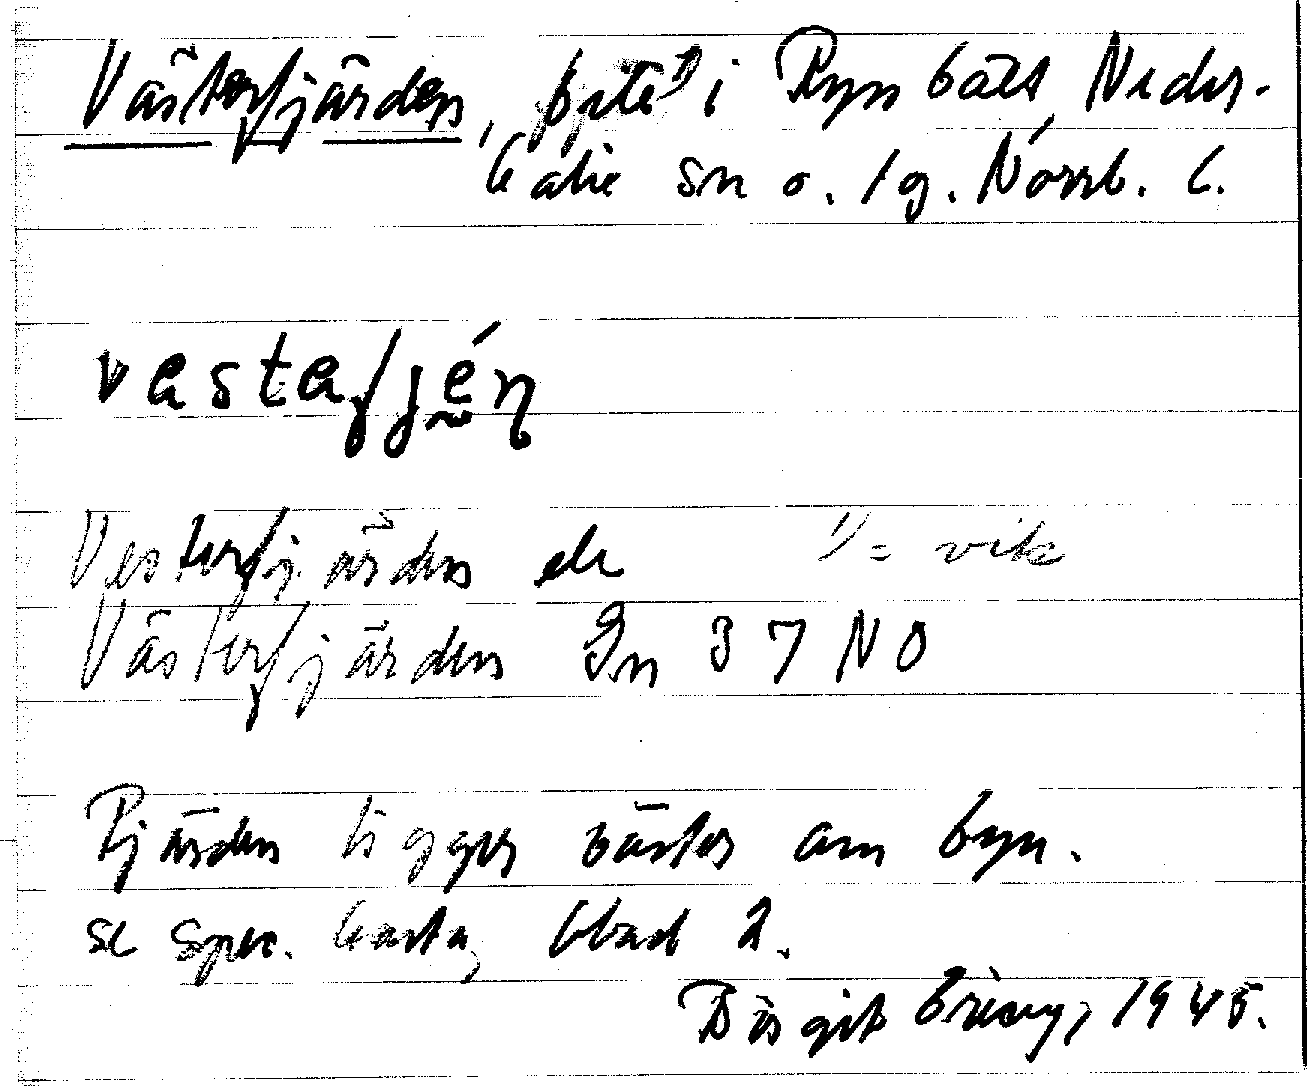 Västerfjärden, fjärd¹⁾ i Ryn båts Neder-
Kalix sn o. tg. Norrb. l.
vestafjén
Vesterfjärden ek ¹⁾ = vik
Västerfjärden En 37 NO
Fjärden ligger väster om byn.
se spec. karta, blad 2.
Birgit 1945.